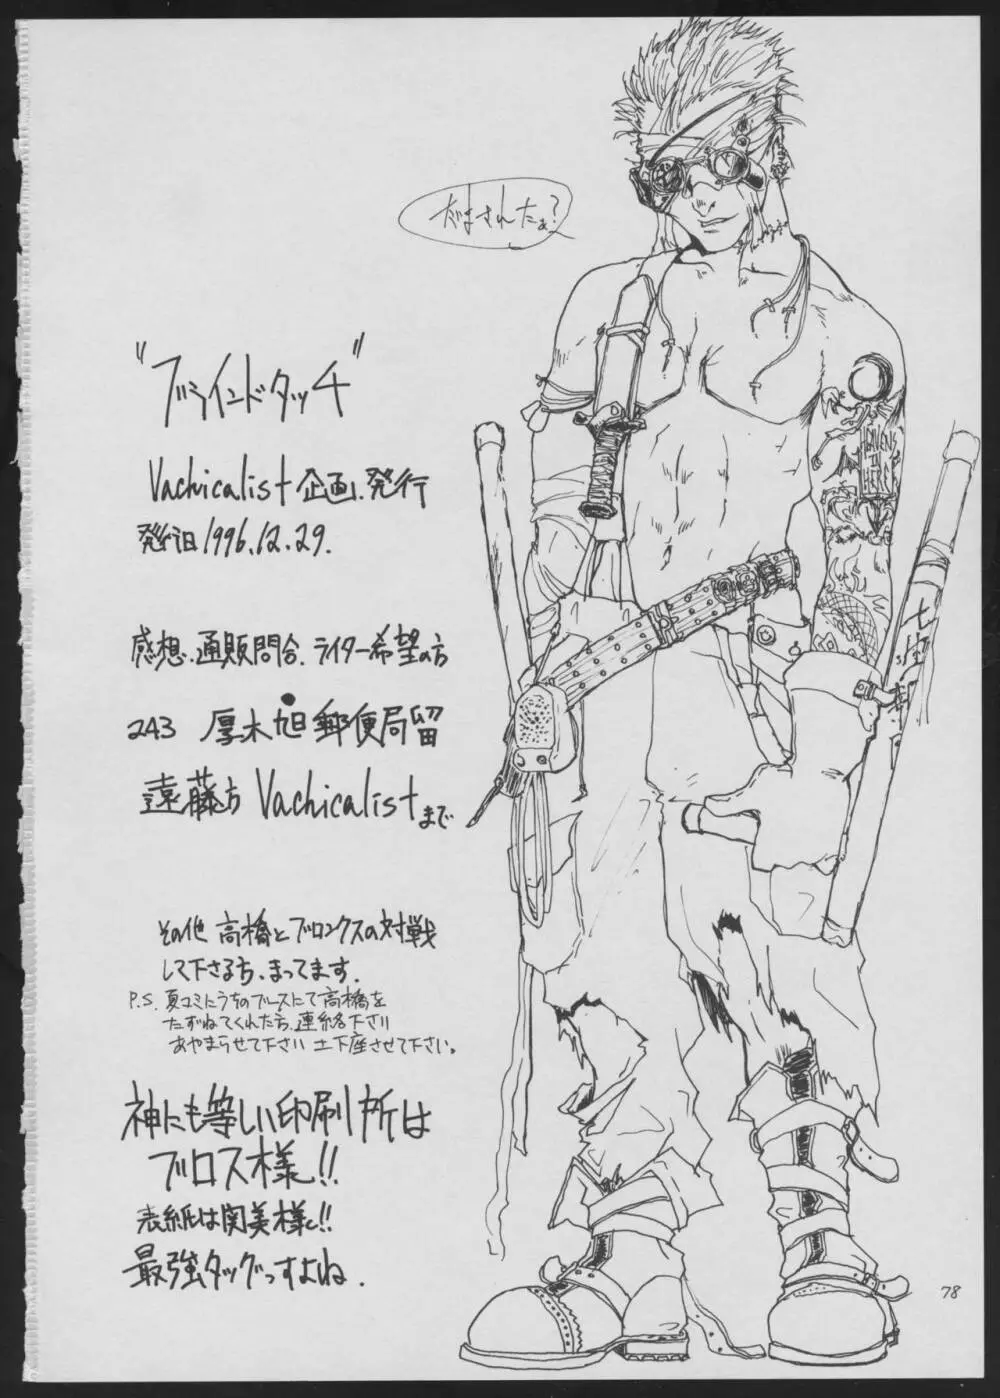 だまされたぁ?
"ブラインドタッチ"
Vachicalist 企画、発行
発行日 1996.12.29.
感想、通販問合、ライター希望の方
243 厚木旭郵便局留
遠藤方 Vachicalist まで
その他 高橋とブロンクスの対戦
して下さる方、まってます.
P.S. 夏コミにうちのブースにて高橋を
たずねてくれた方、連絡下さい
あやまらせて下さい 土下座させて下さい。
神にも等しい印刷所は
ブロス様!!
表紙は関美様!!
最強タッグっすよね.
HEAVENS
78